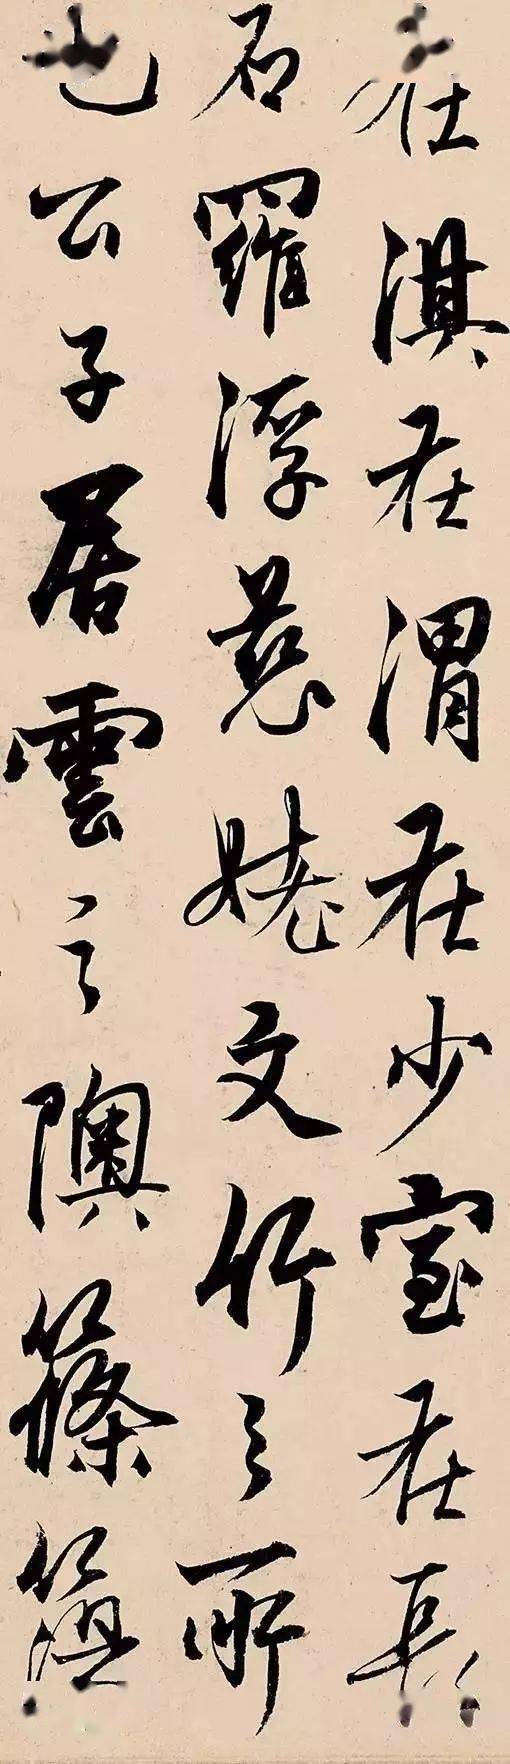 在淇在渭在少室在長
石羅浮慈姥文竹之所
也公子居雲之隩篠簜